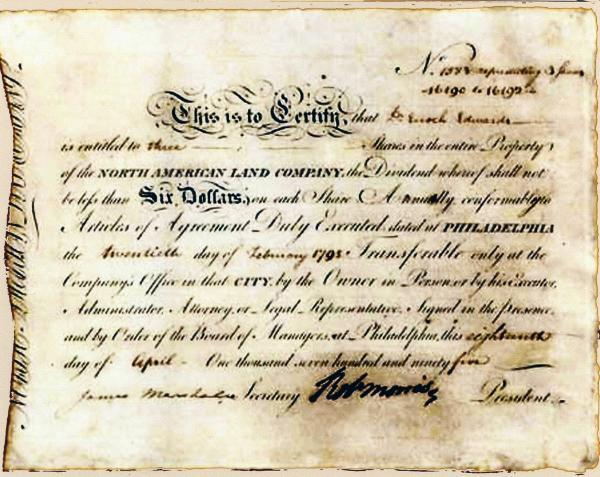 No. 1583 representing 3 Shares
16190 to 16192
This is to Certify, that Dr. Enoch Edwards
is entitled to three Shares in the entire Property
of the NORTH AMERICAN LAND COMPANY, the Dividend whereof shall not
be less than Six Dollars, on each Share Annually, conformably to
Articles of Agreement Duly Executed, dated at PHILADELPHIA
the twentieth day of February 1795 Transferable only at the
Company's Office in that CITY, by the Owner in Person, or by his Executor,
Administrator, Attorney, or Legal Representative. Signed in the presence
and by Order of the Board of Managers, at Philadelphia, this eighteenth
day of April One thousand seven hundred and ninety five
James Marshall Secretary Rob Morris President